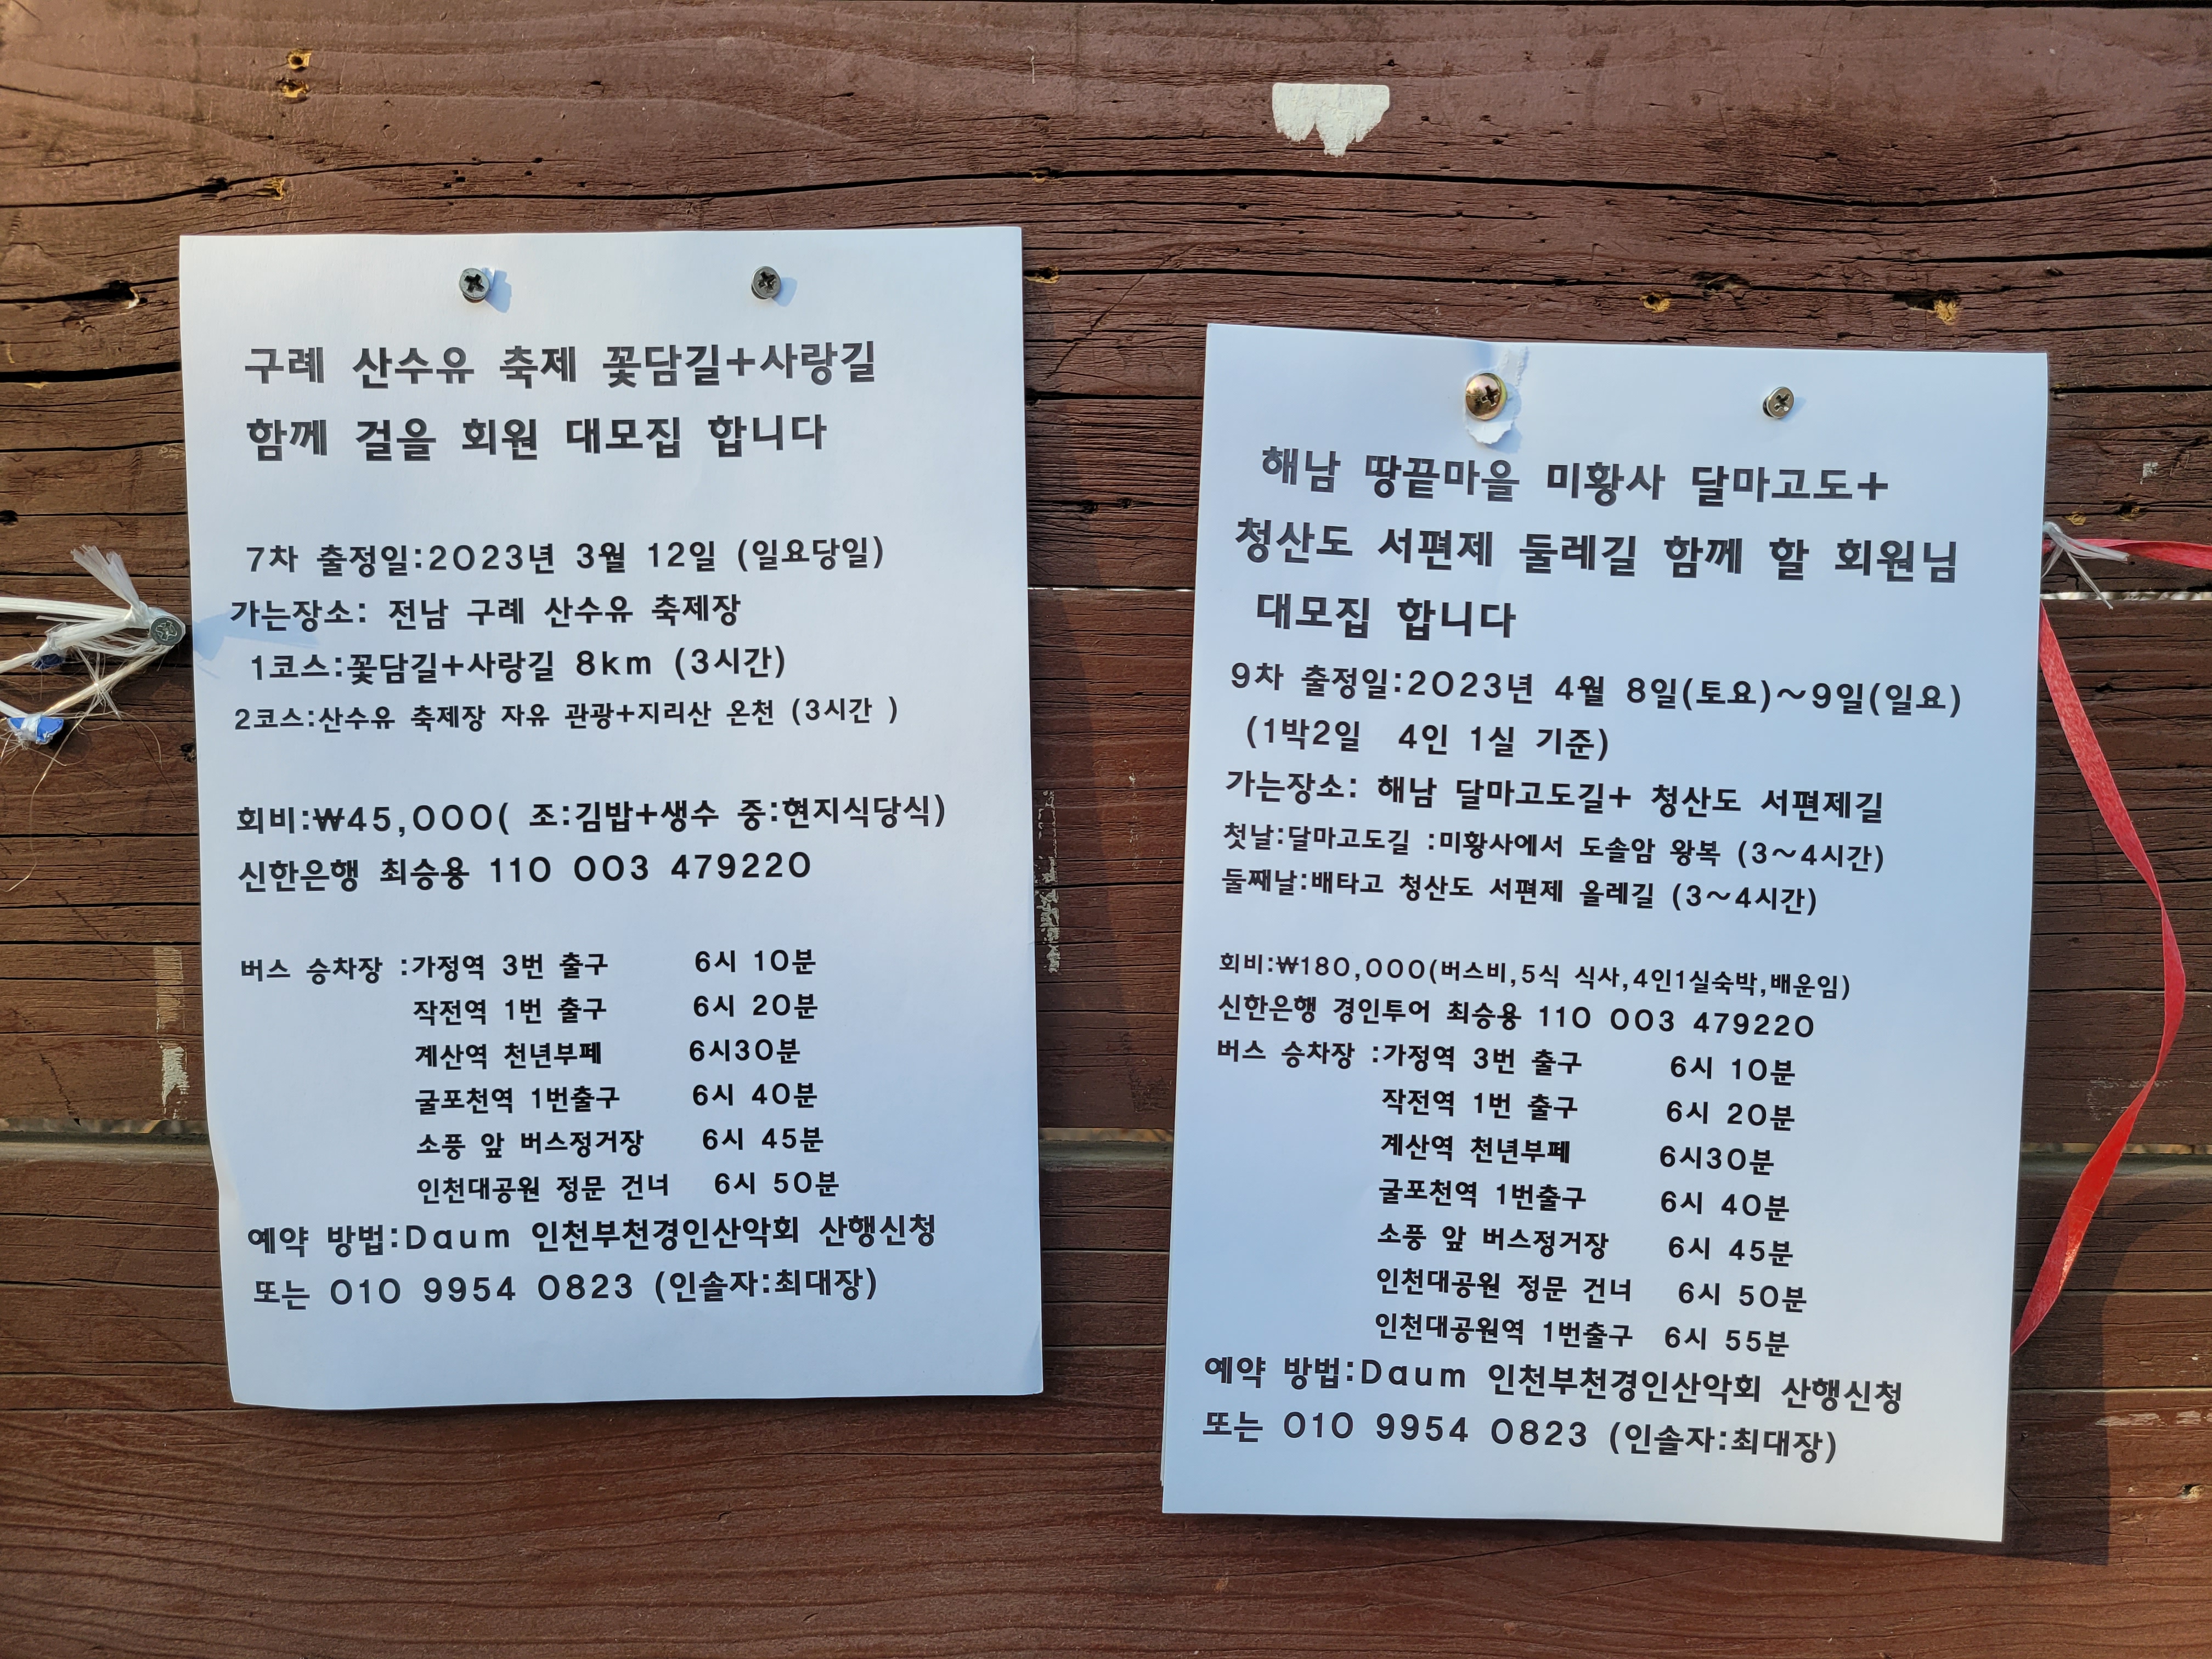 구례 산수유 축제 꽃담길+사랑길
함께 걸을 회원 대모집 합니다
7차 출정일:2023년 3월 12일 (일요당일)
가는장소: 전남 구례 산수유 축제장
1코스:꽃담길+사랑길 8km (3시간)
2코스:산수유 축제장 자유 관광+지리산 온천 (3시간 )
회비:₩45,000( 조:김밥+생수 중:현지식당식)
신한은행 최승용 110 003 479220
버스 승차장 :가정역 3번 출구 6시 10분
작전역 1번 출구 6시 20분
계산역 천년부페 6시30분
굴포천역 1번출구 6시 40분
소풍 앞 버스정거장 6시 45분
인천대공원 정문 건너 6시 50분
예약 방법:Daum 인천부천경인산악회 산행신청
또는 010 9954 0823 (인솔자:최대장)
해남 땅끝마을 미황사 달마고도+
청산도 서편제 둘레길 함께 할 회원님
대모집 합니다
9차 출정일:2023년 4월 8일(토요)~9일(일요)
(1박2일 4인 1실 기준)
가는장소: 해남 달마고도길+ 청산도 서편제길
첫날:달마고도길 :미황사에서 도솔암 왕복 (3~4시간)
둘째날:배타고 청산도 서편제 올레길 (3~4시간)
회비:₩180,000(버스비,5식 식사,4인1실숙박,배운임)
신한은행 경인투어 최승용 110 003 479220
버스 승차장 :가정역 3번 출구 6시 10분
작전역 1번 출구 6시 20분
계산역 천년부페 6시30분
굴포천역 1번출구 6시 40분
소풍 앞 버스정거장 6시 45분
인천대공원 정문 건너 6시 50분
인천대공원역 1번출구 6시 55분
예약 방법:Daum 인천부천경인산악회 산행신청
또는 010 9954 0823 (인솔자:최대장)